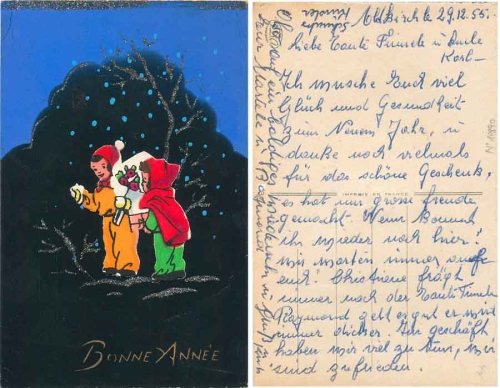 BONNE ANNÉE
29.12.55.
Liebe Tante Trinele u. Onkle
Karl –
Ich wünsche Euch viel
Glück und Gesundheit
zum Neuem Jahr, u
danke noch vielmals
für das schöne Geschenk,
es hat mir grosse freude
gemacht. Wenn kommt
ihr wieder nach hier?
wir warten immer auf
euch! Christiane frägt
immer nach der Tante Trinele
Raymond geht es gut er wird
immer dicker. Im geschäft
haben wir viel zu tun, wir
sind zufrieden.
IMPRIMÉ EN FRANCE
auf ein baldiges Wiedersehn